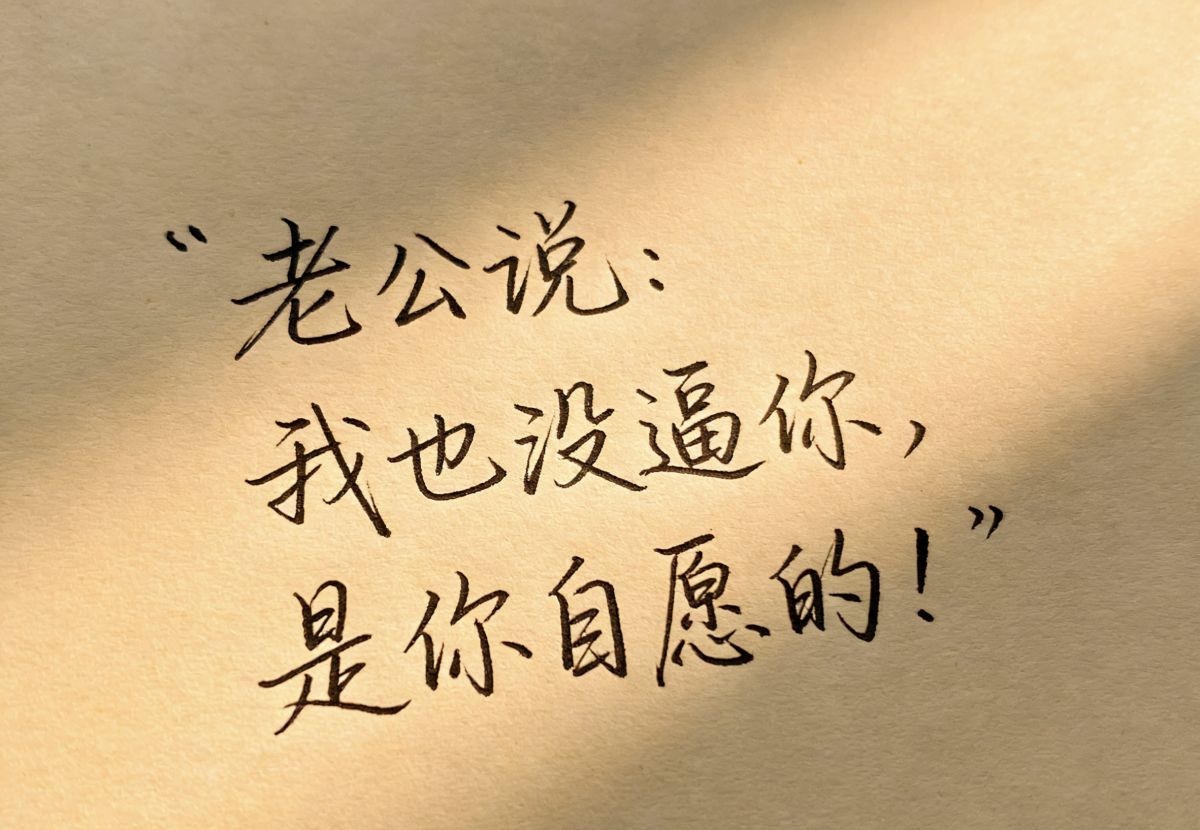 “老公说：
我也没逼你，
是你自愿的！”